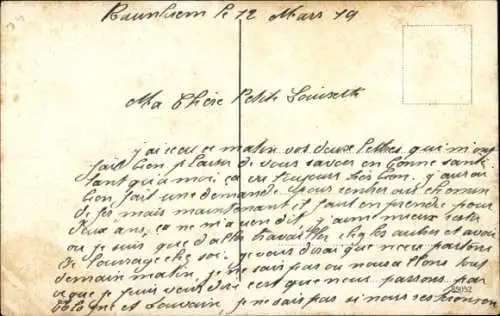 Raunheim le 12 Mars 19
Ma Chère Petite Louisette
j'ai reçu ce matin vos deux lettres qui m'ont
fait bien plaisir de vous savoir en bonne santé
tant qu'a moi ça va toujours très bien. j'aurai
bien fait une demande pour rentrer aux chemin
de fer mais maintenant il faut en prendre pour
deux ans, ça ne m'a rien dit, j'aime mieux
ou je suis que d'aller travailler chez les autres et avoir
de l'ouvrage chez soi. je vous dirai que nous partons
demain matin, je ne sais pas ou nous allons tout
ce que je puis vous dire c'est que nous passons par
Cologne et Louvain, je ne sais pas si nous
85052